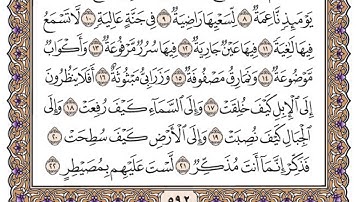 يَوْمَئِذٍ نَّاعِمَةٌ ٨ لِّسَعْيِهَا رَاضِيَةٌ ٩ فِي جَنَّةٍ عَالِيَةٍ ١٠ لَّا تَسْمَعُ
فِيهَا لَٰغِيَةً ١١ فِيهَا عَيْنٌ جَارِيَةٌ ١٢ فِيهَا سُرُرٌ مَّرْفُوعَةٌ ١٣ وَأَكْوَابٌ
مَّوْضُوعَةٌ ١٤ وَنَمَارِقُ مَصْفُوفَةٌ ١٥ وَزَرَابِيُّ مَبْثُوثَةٌ ١٦ أَفَلَا يَنظُرُونَ
إِلَى الْإِبِلِ كَيْفَ خُلِقَتْ ١٧ وَإِلَى السَّمَاءِ كَيْفَ رُفِعَتْ ١٨ وَإِلَى
الْجِبَالِ كَيْفَ نُصِبَتْ ١٩ وَإِلَى الْأَرْضِ كَيْفَ سُطِحَتْ ٢٠
فَذَكِّرْ إِنَّمَا أَنتَ مُذَكِّرٌ ٢١ لَّسْتَ عَلَيْهِم بِمُصَيْطِرٍ ٢٢
٥٩٢